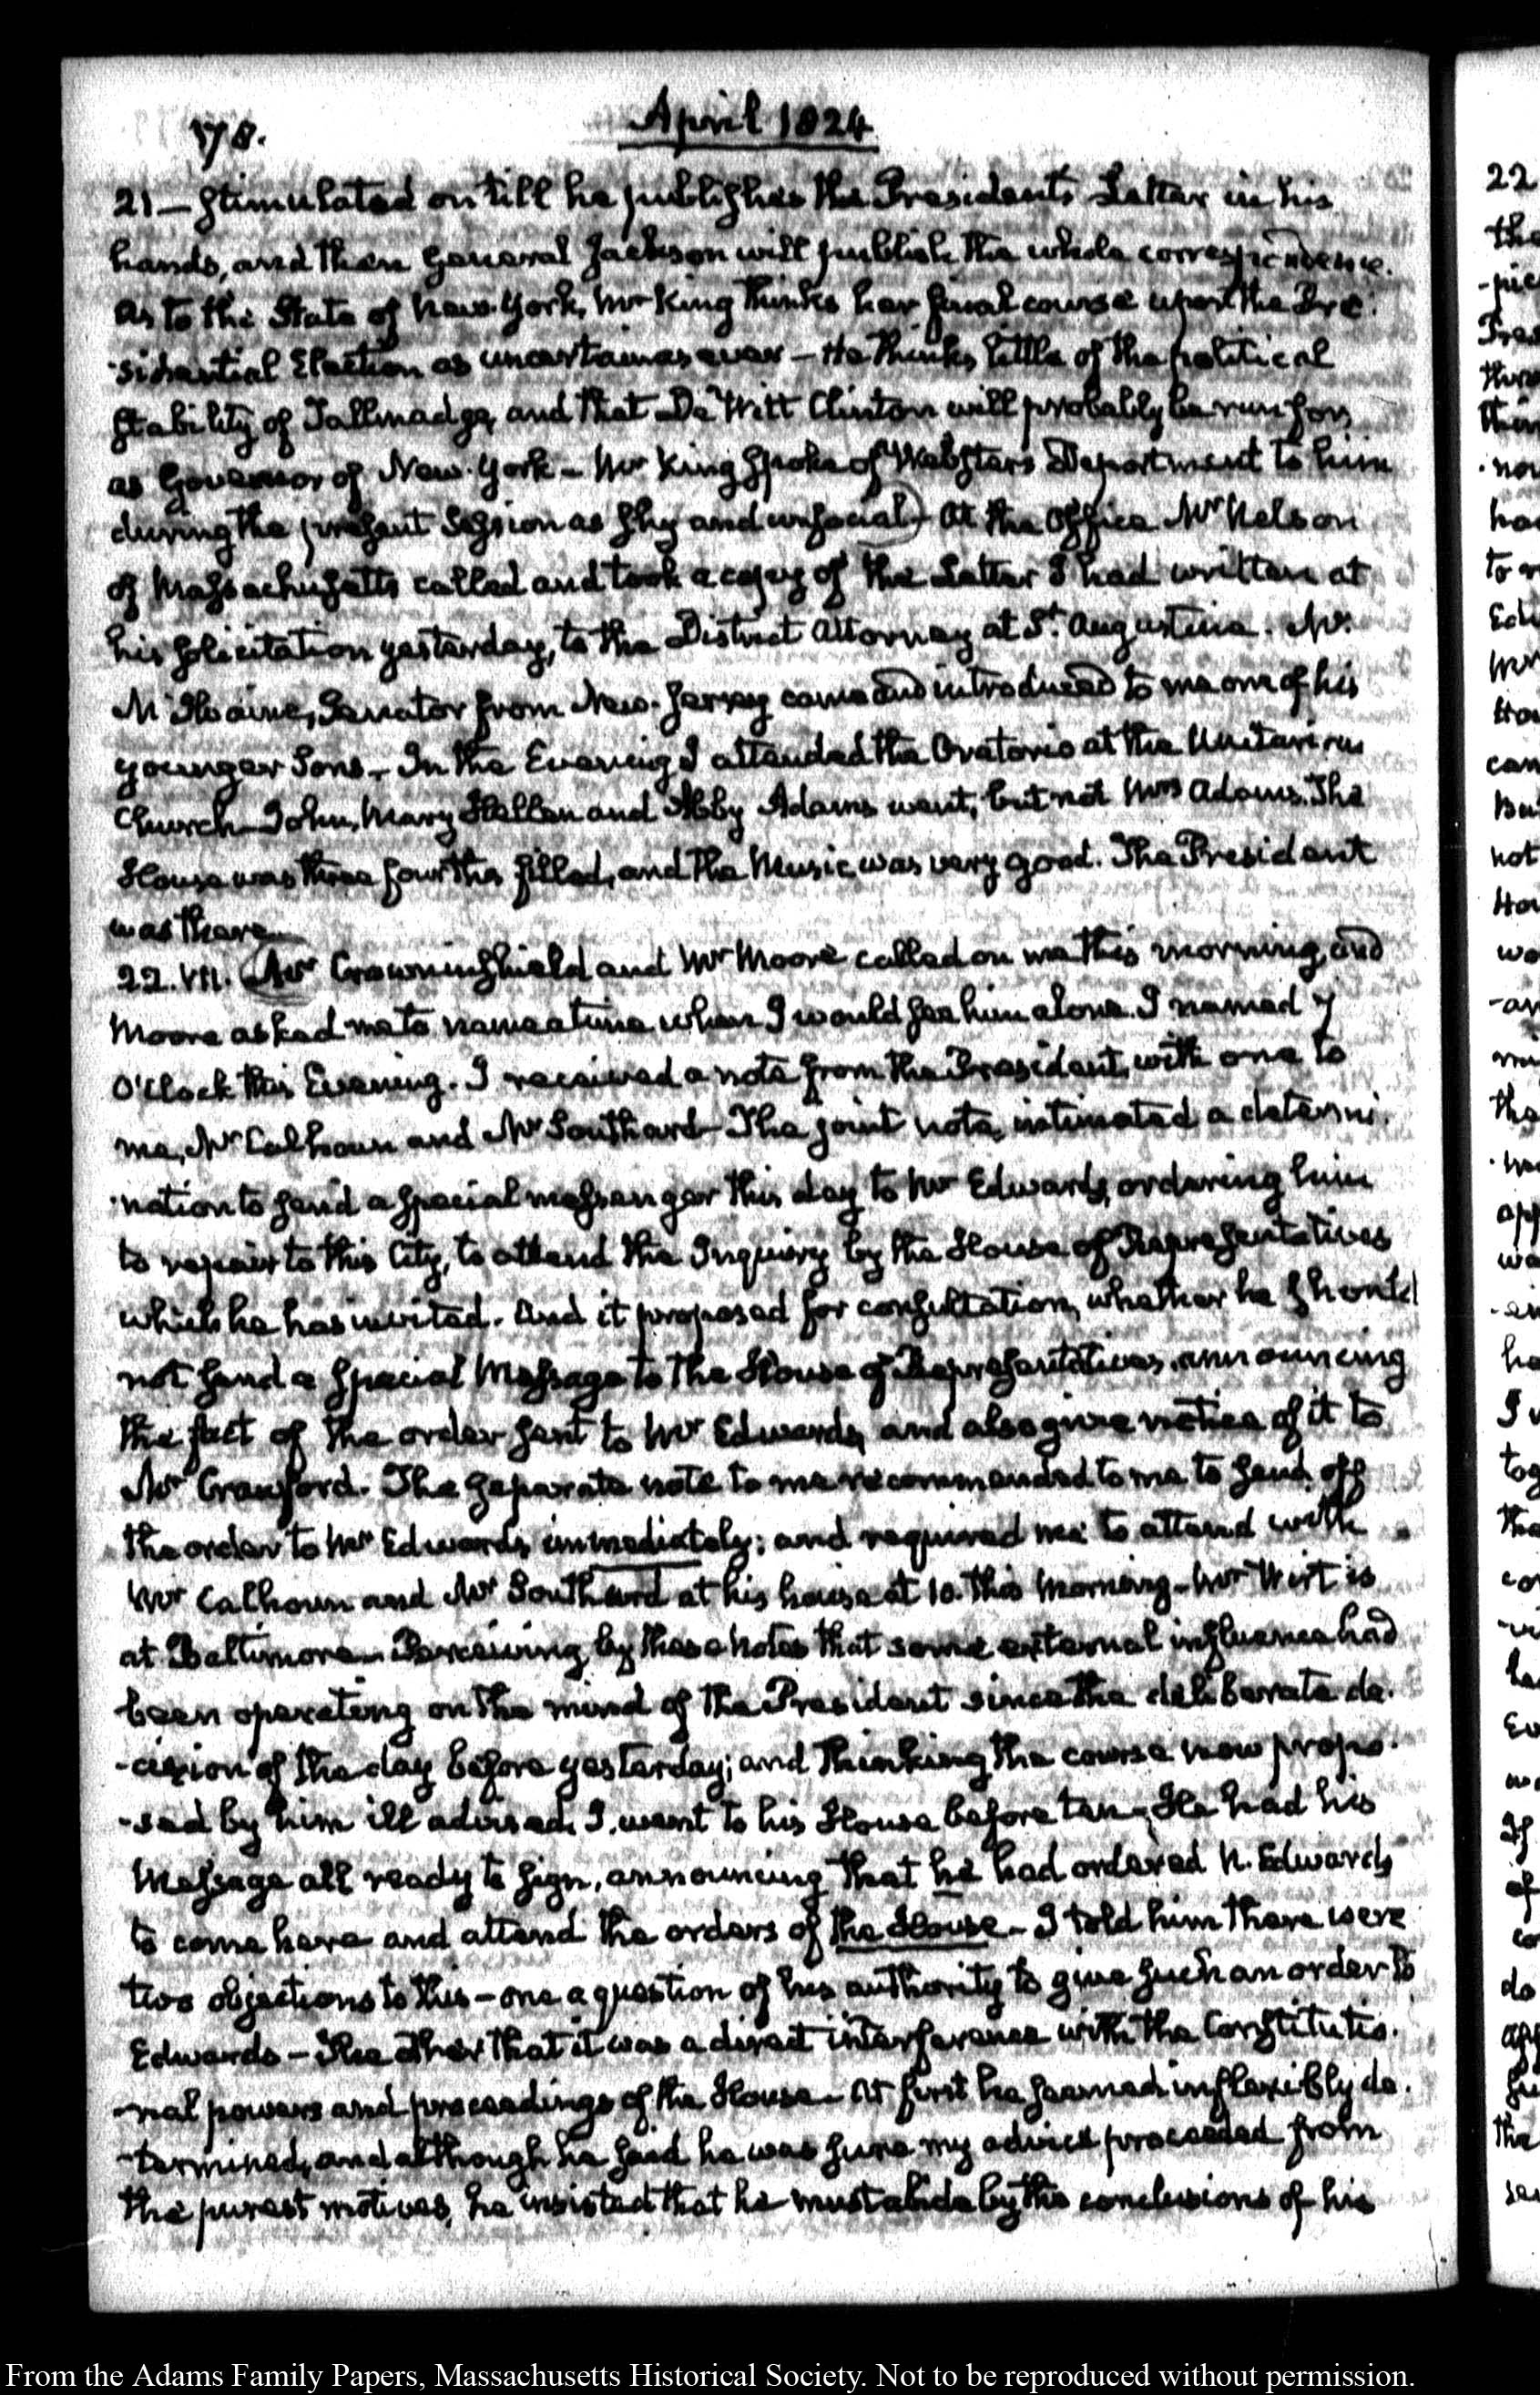 178.
April 1824
21 — stimulated on till he publishes the President's Letter in his
hands, and then General Jackson will publish the whole correspondence.
As to the State of New-York, Mr King thinks her final course upon the Pre-
-sidential Election as uncertain as ever — He thinks little of the political
stability of Tallmadge, and that De Witt Clinton will probably be run for,
as Governor of New-York — Mr King spoke of Webster's Deportment to him
during the present Session as shy and unsocial — At the Office Mr Nelson
of Massachusetts called and took a copy of the Letter I had written at
his solicitation yesterday, to the District Attorney at St. Augustine. Mr.
McIlvaine, Senator from New-Jersey came and introduced to me one of his
younger Sons — In the Evening I attended the Oratorio at the Unitarian
Church — John, Mary Hellen and Abby Adams went, but not Mrs Adams. The
House was three fourths filled, and the Music was very good. The President
was there.
22. VII. Mr Crowninshield and Mr Moore called on me this morning, and
Moore asked me to name a time when I would see him alone. I named 7
O'Clock this Evening. I received a note from the President, with one to
me, Mr Calhoun and Mr Southard — The joint note, intimated a determi-
-nation to send a special messenger this day to Mr Edwards, ordering him
to repair to this City, to attend the Inquiry by the House of Representatives
which he has invited. And it proposed for consultation, whether he should
not send a special Message to the House of Representatives, announcing
the fact of the order sent to Mr Edwards, and also give notice of it to
Mr Crawford. The separate note to me recommended to me to send off
the order to Mr Edwards immediately; and required me to attend with
Mr Calhoun and Mr Southard at his house at 10. this Morning — Mr Wirt is
at Baltimore — Perceiving by these notes that some external influence had
been operating on the mind of the President since the deliberate de-
-cision of the day before yesterday; and thinking the course now propo-
-sed by him ill advised, I went to his House before ten — He had his
Message all ready to sign, announcing that he had ordered N. Edwards
to come here and attend the orders of the House — I told him there were
two objections to this — one a question of his authority to give such an order to
Edwards — The other that it was a direct interference with the Constitutio-
-nal powers and proceedings of the House — At first he seemed inflexibly de-
-termined, and although he said he was sure my advice proceeded from
the purest motives, he insisted that he must abide by the conclusions of his
22
From the Adams Family Papers, Massachusetts Historical Society. Not to be reproduced without permission.